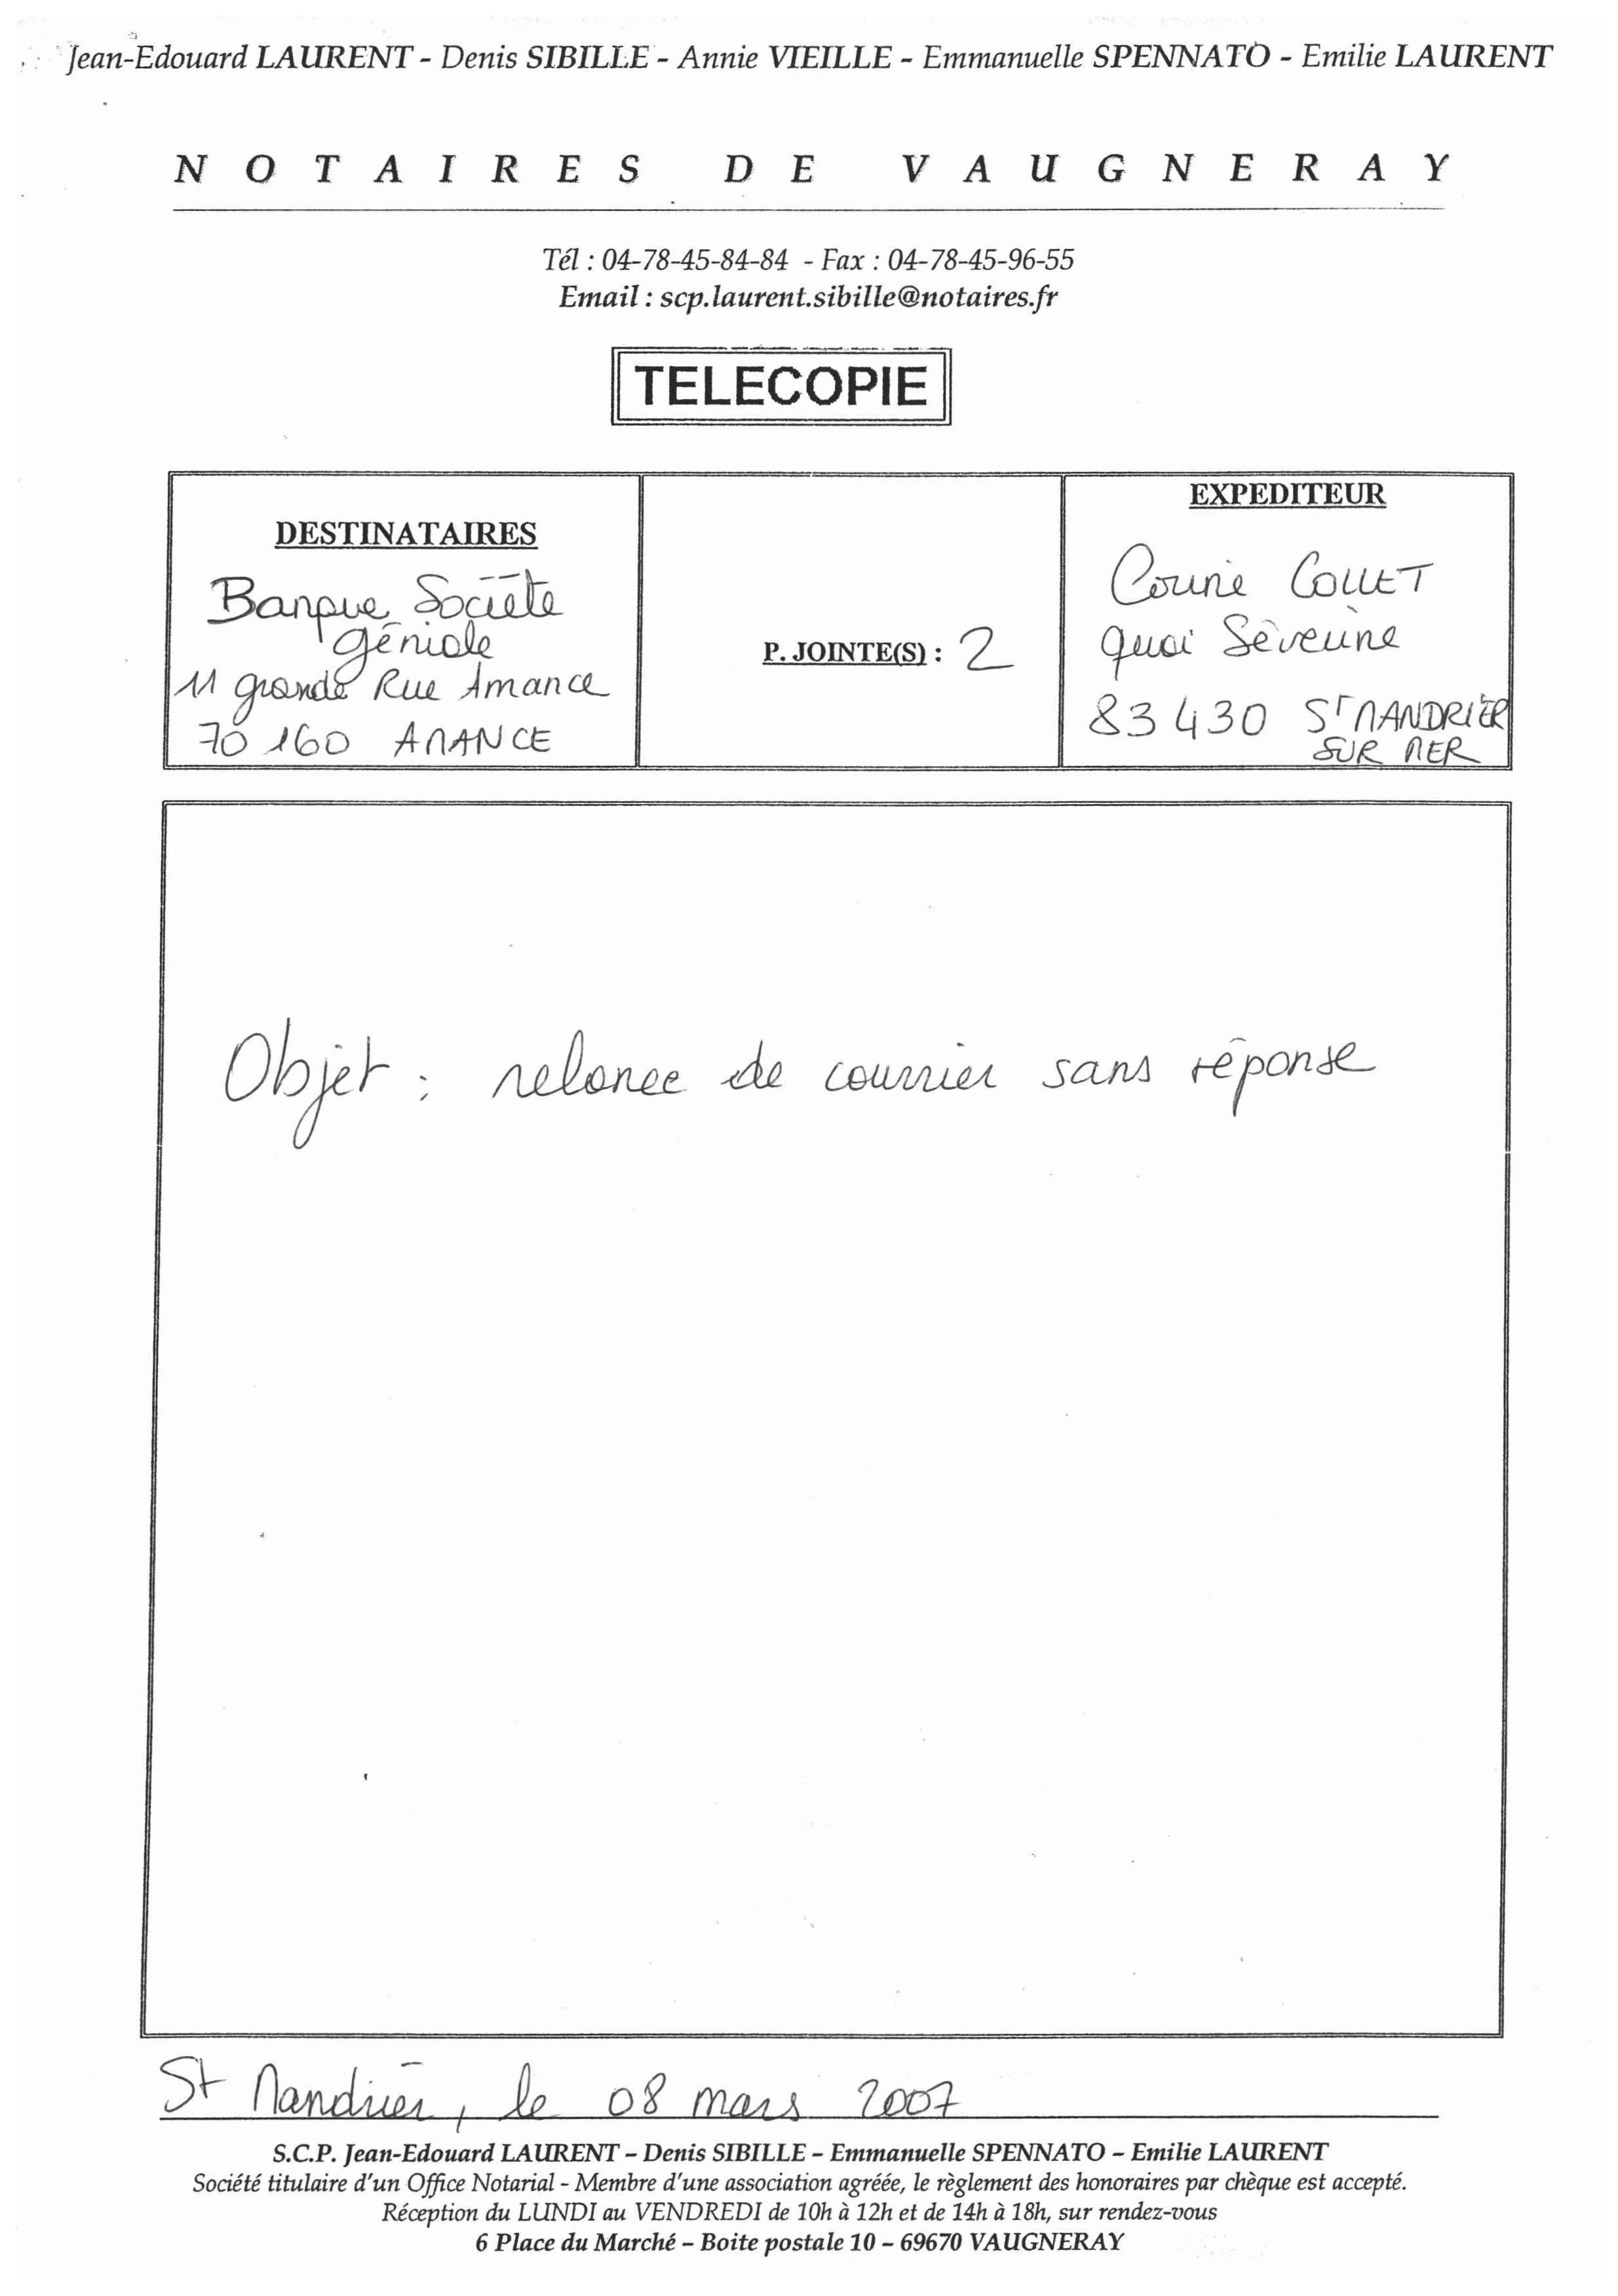 Jean-Edouard LAURENT - Denis SIBILLE - Annie VIEILLE - Emmanuelle SPENNATO - Emilie LAURENT
NOTAIRES DE VAUGNERAY
Tél : 04-78-45-84-84 - Fax : 04-78-45-96-55
Email : scp.laurent.sibille@notaires.fr
TELECOPIE
DESTINATAIRES
Banque Société
géniale
11 grande Rue Amance
70 160 AMANCE
P. JOINTE(S) : 2
EXPEDITEUR
Corine COLLET
quai Séverine
83 430 ST MANDRIER
SUR MER
Objet : relance de courrier sans réponse
St Mandrier, le 08 mars 2007
S.C.P. Jean-Edouard LAURENT – Denis SIBILLE – Emmanuelle SPENNATO – Emilie LAURENT
Société titulaire d'un Office Notarial - Membre d'une association agréée, le règlement des honoraires par chèque est accepté.
Réception du LUNDI au VENDREDI de 10h à 12h et de 14h à 18h, sur rendez-vous
6 Place du Marché – Boite postale 10 – 69670 VAUGNERAY